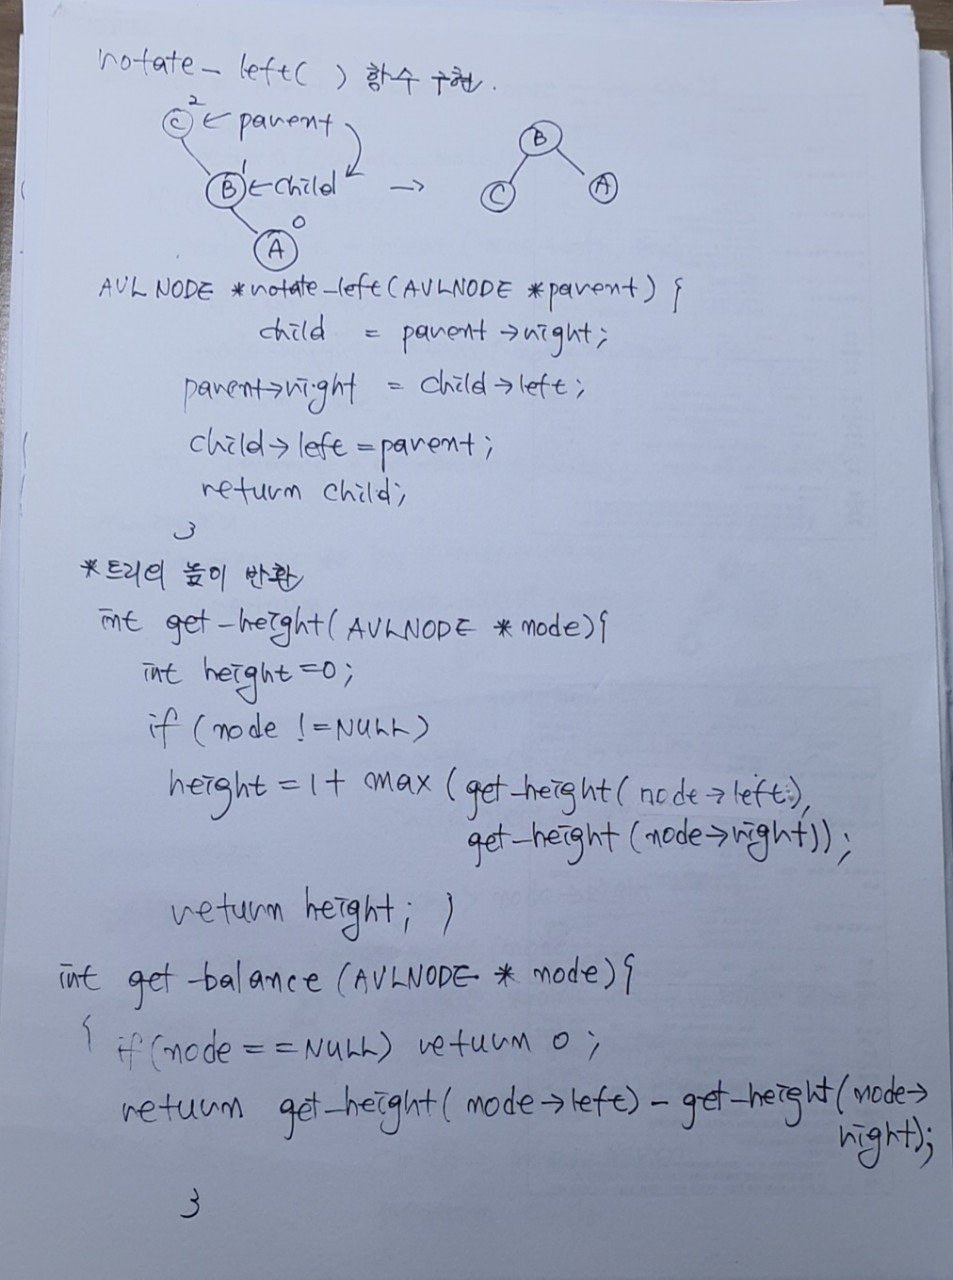 rotate_left( ) 함수 구현.
C 2 ← parent
B 1 ← child →
A 0
B
C A
AVLNODE *rotate_left(AVLNODE *parent) {
child = parent→right;
parent→right = child→left;
child→left = parent;
return child;
}
*트리의 높이 반환
int get-height(AVLNODE *node){
int height=0;
if (node !=NULL)
height = 1+ max (get-height(node→left),
get-height(node→right));
return height; }
int get-balance (AVLNODE * node){
{ if(node == NULL) return 0;
return get_height(node→left) - get-height(node→
right);
}